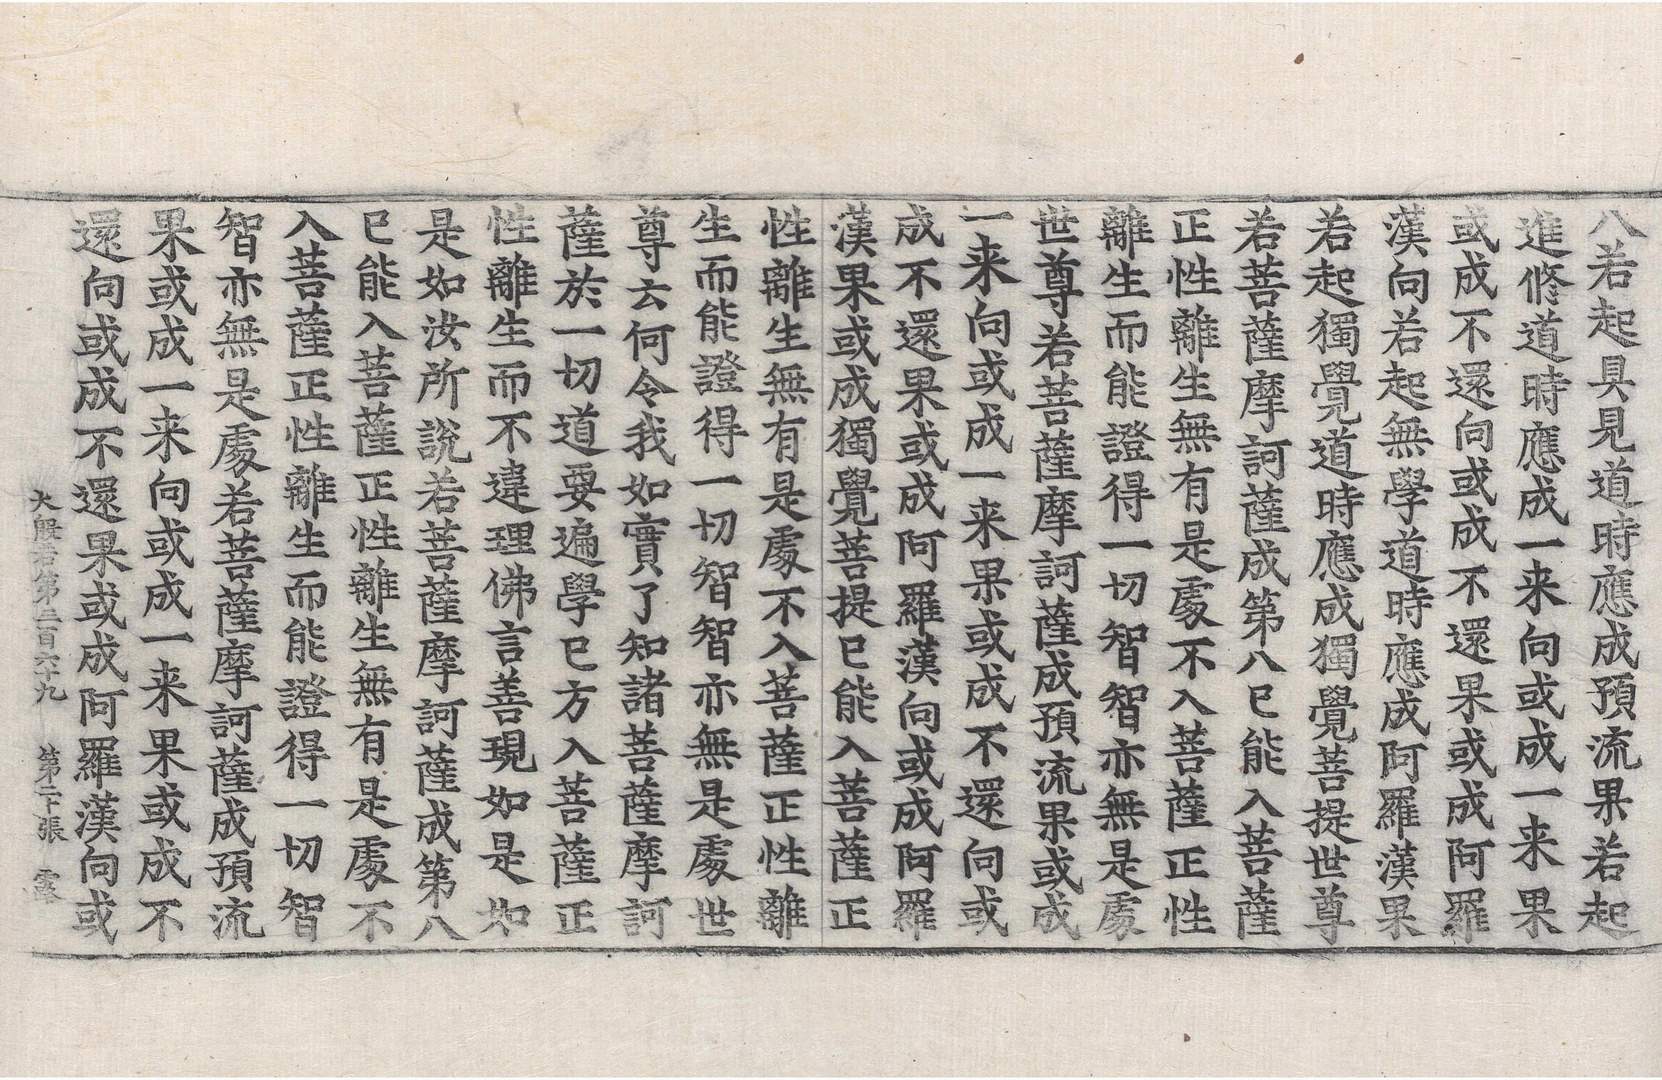 八若起具見道時應成預流果若起
進修道時應成一来向或成一来果
或成不還向或成不還果或成阿羅
漢向若起無學道時應成阿羅漢果
若起獨覺道時應成獨覺菩提世尊
若菩薩摩訶薩成第八已能入菩薩
正性離生無有是處不入菩薩正性
離生而能證得一切智智亦無是處
世尊若菩薩摩訶薩成預流果或成
一来向或成一来果或成不還向或
成不還果或成阿羅漢向或成阿羅
漢果或成獨覺菩提已能入菩薩正
性離生無有是處不入菩薩正性離
生而能證得一切智智亦無是處世
尊云何令我如實了知諸菩薩摩訶
薩於一切道要遍學已方入菩薩正
性離生而不違理佛言善現如是如
是如汝所說若菩薩摩訶薩成第八
已能入菩薩正性離生無有是處不
入菩薩正性離生而能證得一切智
智亦無是處若菩薩摩訶薩成預流
果或成一来向或成一来果或成不
還向或成不還果或成阿羅漢向或
大般若第三百六十九 第二十張 露